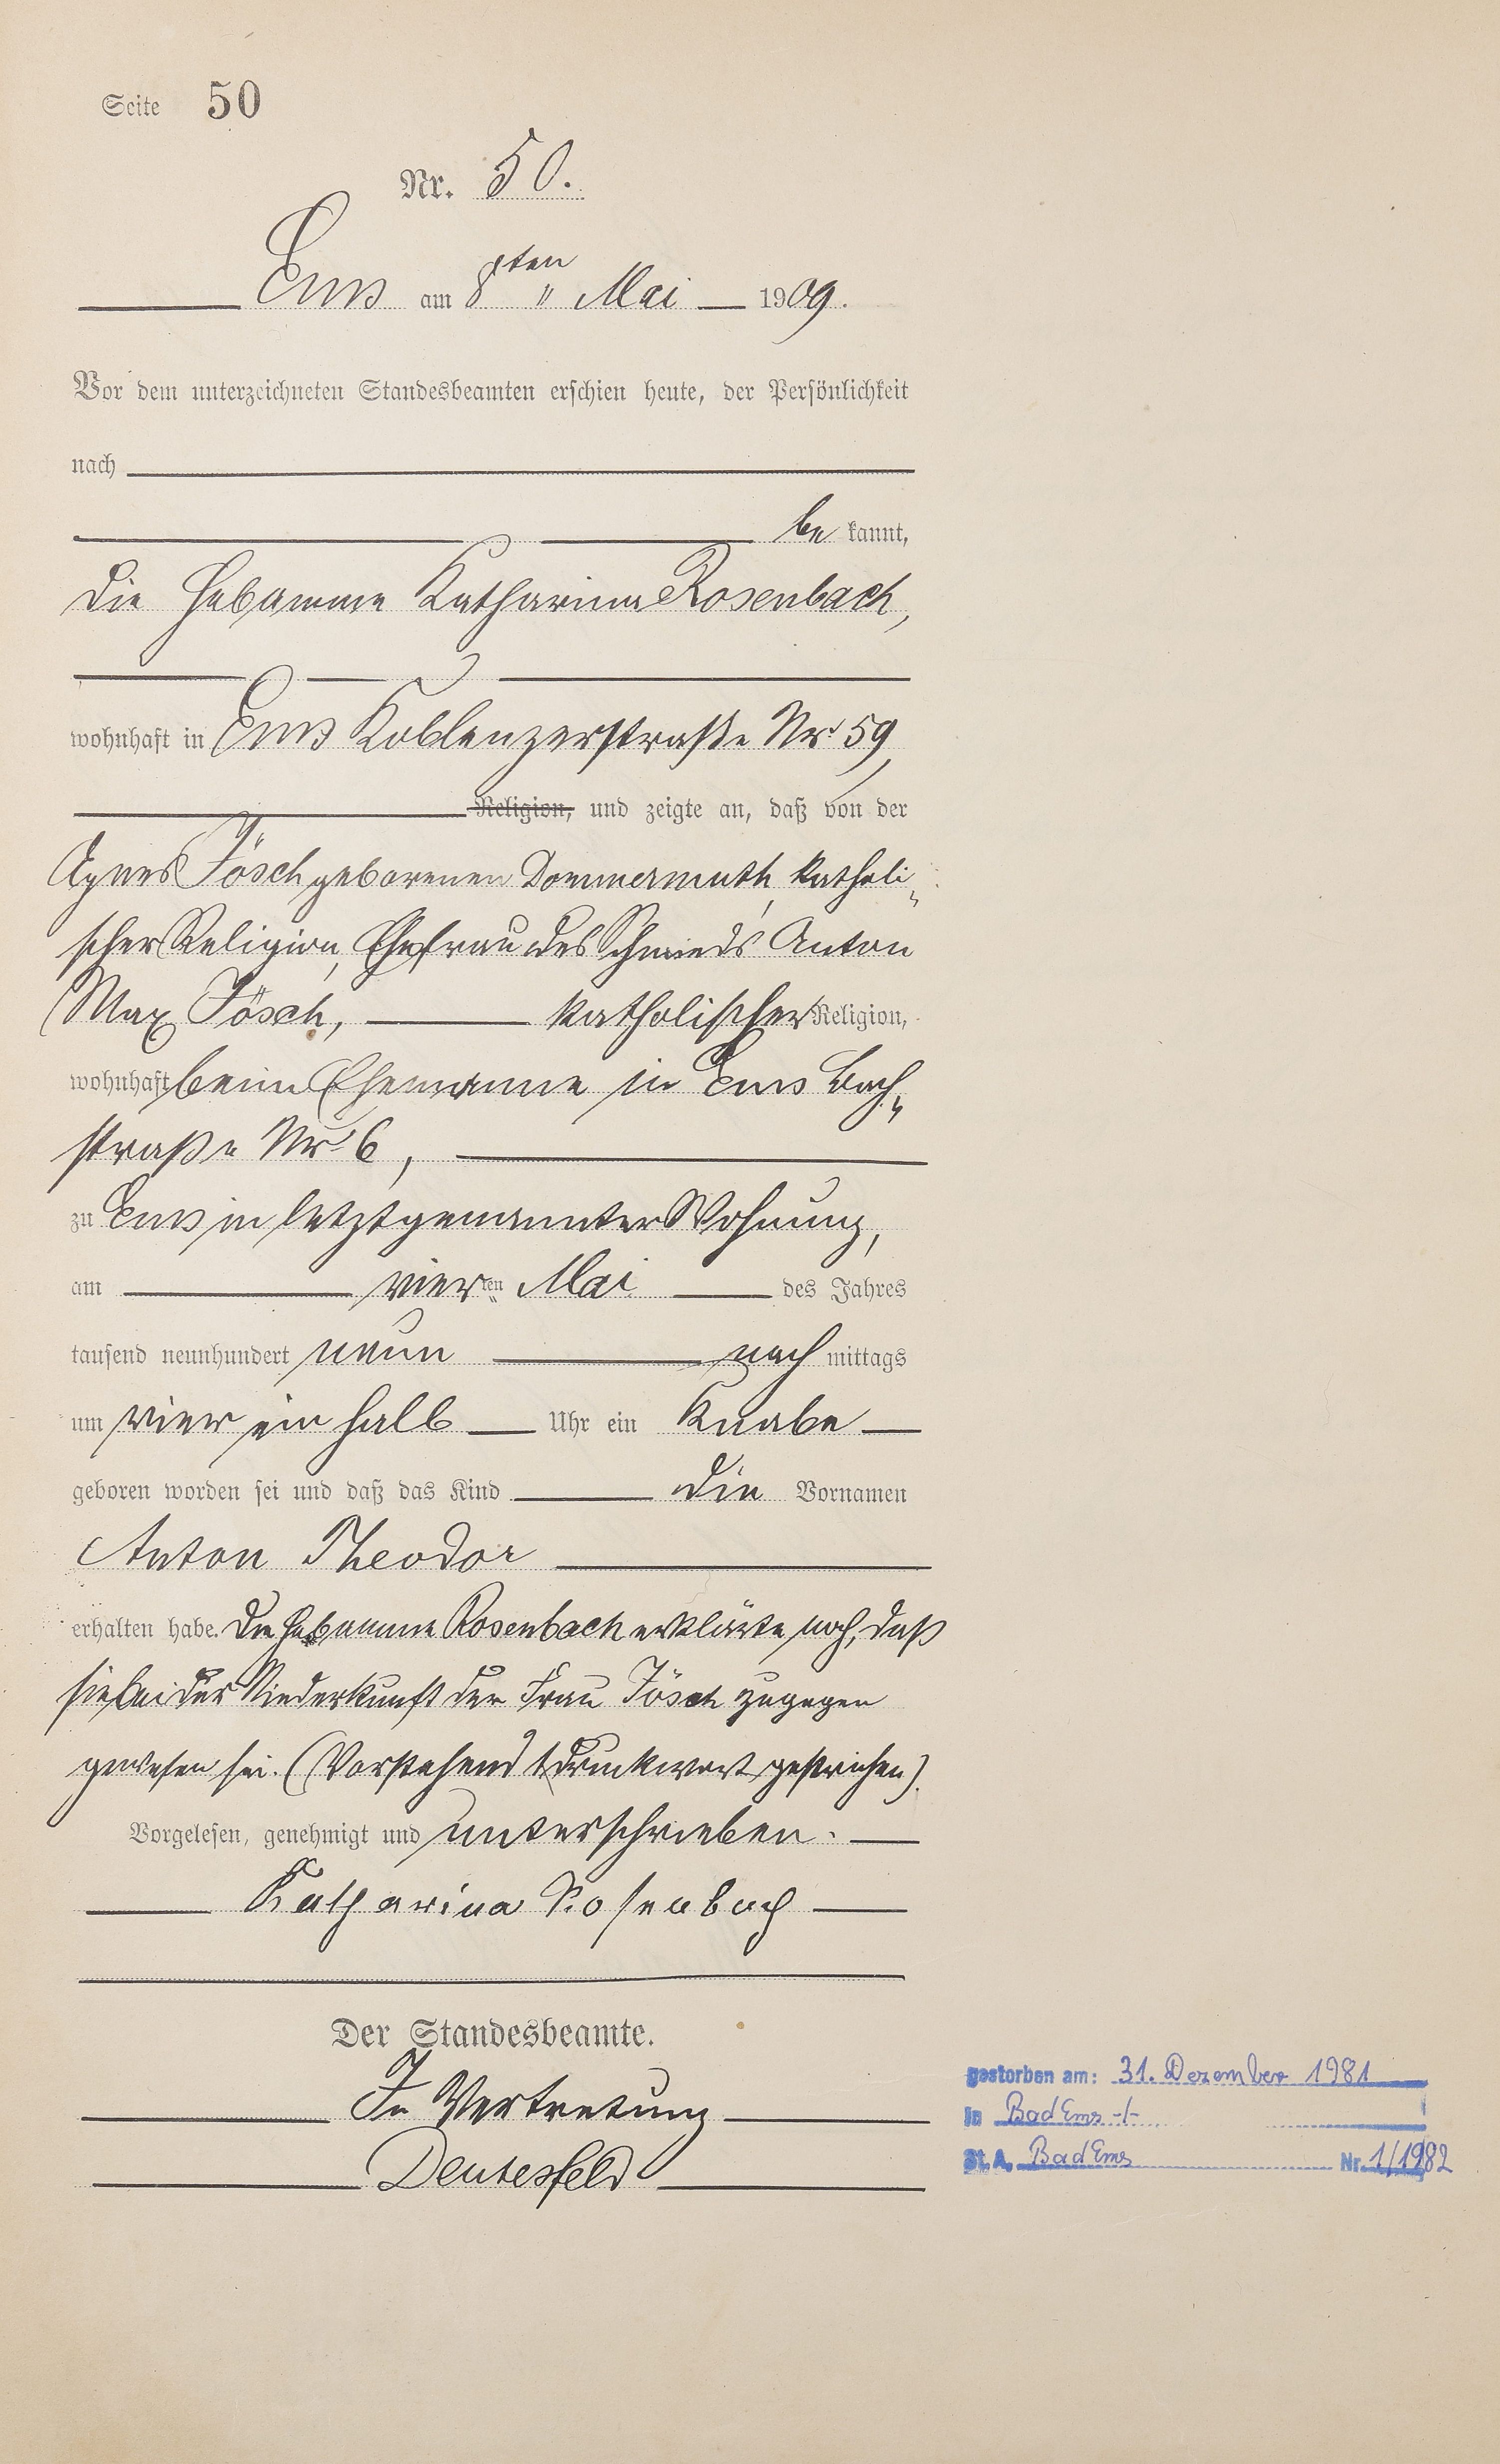 Seite 50
Nr. 50.
Ems am 8ten " Mai 1909.
Vor dem unterzeichneten Standesbeamten erschien heute, der Persönlichkeit
nach
be kannt,
die Hebamme Katharina Rosenbach,
wohnhaft in Ems Koblenzerstraße Nr. 59,
Religion, und zeigte an, daß von der
Agnes Jösch geborenen Dommermuth, katholi-
scher Religion, Ehefrau des Schmieds Anton
Max Jösch, katholischer Religion,
wohnhaft beim Ehemanne in Ems Bach-
straße Nr. 6,
zu Ems in letztgenannter Wohnung,
am vierten Mai des Jahres
tausend neunhundert neun nach mittags
um vier ein halb Uhr ein Knabe
geboren worden sei und daß das Kind die Vornamen
Anton Theodor
erhalten habe. Die Hebamme Rosenbach erklärte noch, daß
sie bei der Niederkunft der Frau Jösch zugegen
gewesen sei. (Vorstehend 1 Druckwort gestrichen).
Vorgelesen, genehmigt und unterschrieben.
Katharina Rosenbach
Der Standesbeamte.
In Vertretung
Deutesfeld
gestorben am: 31. Dezember 1981
in Bad Ems -/-
St. A. Bad Ems Nr. 1/1982